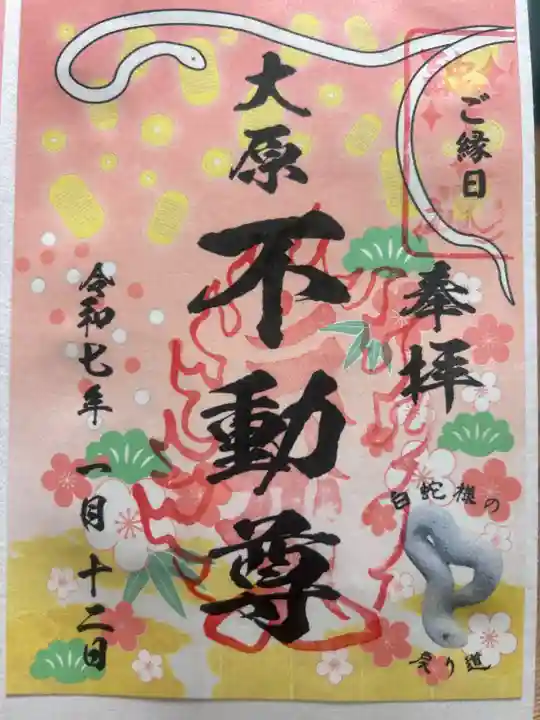 ご縁日
奉拝
大原
不動尊
令和七年 一月十二日
白蛇様の
戻り道